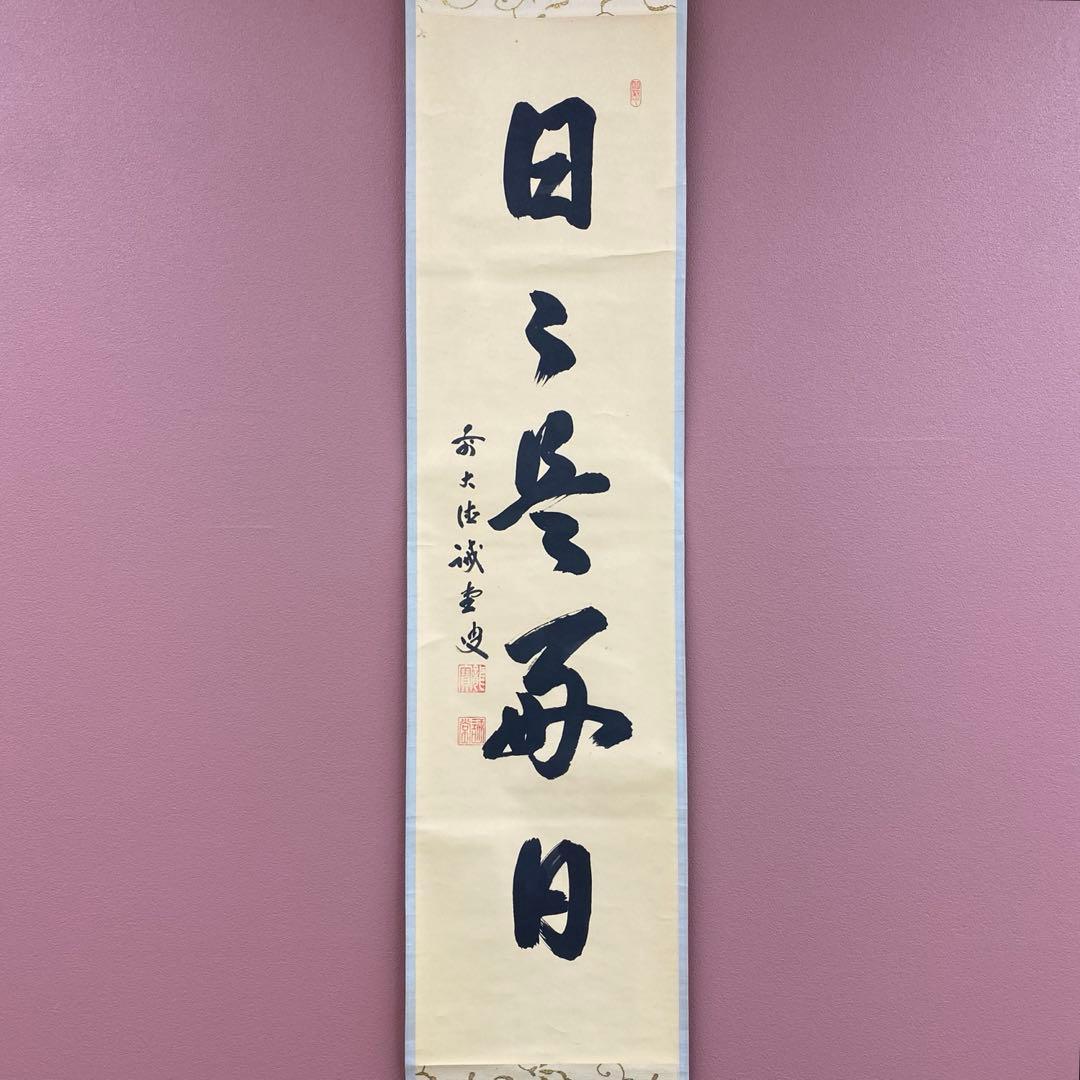 日々是好日
前大徳誠堂叟